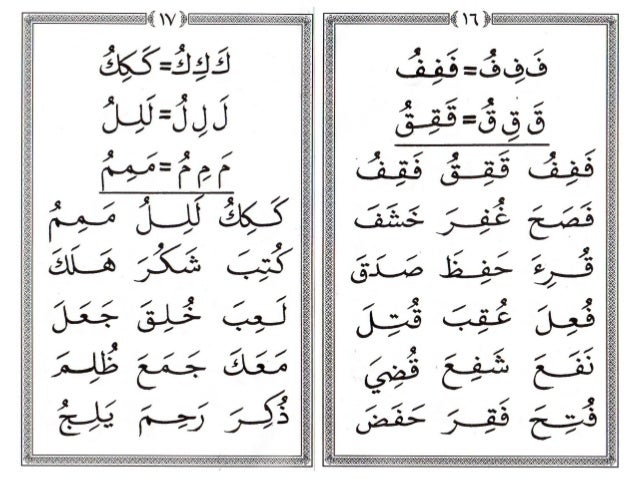 ١٦
فَ فِ فُ=فَفِفُ
قَ قِ قُ=قَقِقُ
فَفِفُ قَقِقُ فَقِفُ
فَصَحَ غُفِرَ خَشَفَ
قُرِءَ حَفِظَ صَدَقَ
فُعِلَ عُقِبَ قُتِلَ
نَفَعَ شَفِعَ قُضِيَ
فُتِحَ فَقِرَ حَفَضَ
١٧
كَ كِ كُ=كَكِكُ
لَ لِ لُ=لَلِلُ
مَ مِ مُ=مَمِمُ
كَكِكُ لَلِلُ مَمِمُ
كُتِبَ شَكُرَ هَلَكَ
لَعِبَ خُلِقَ جَعَلَ
مَعَكَ جَمَعَ ظُلِمَ
ذُكِرَ رَحِمَ يَلِجُ